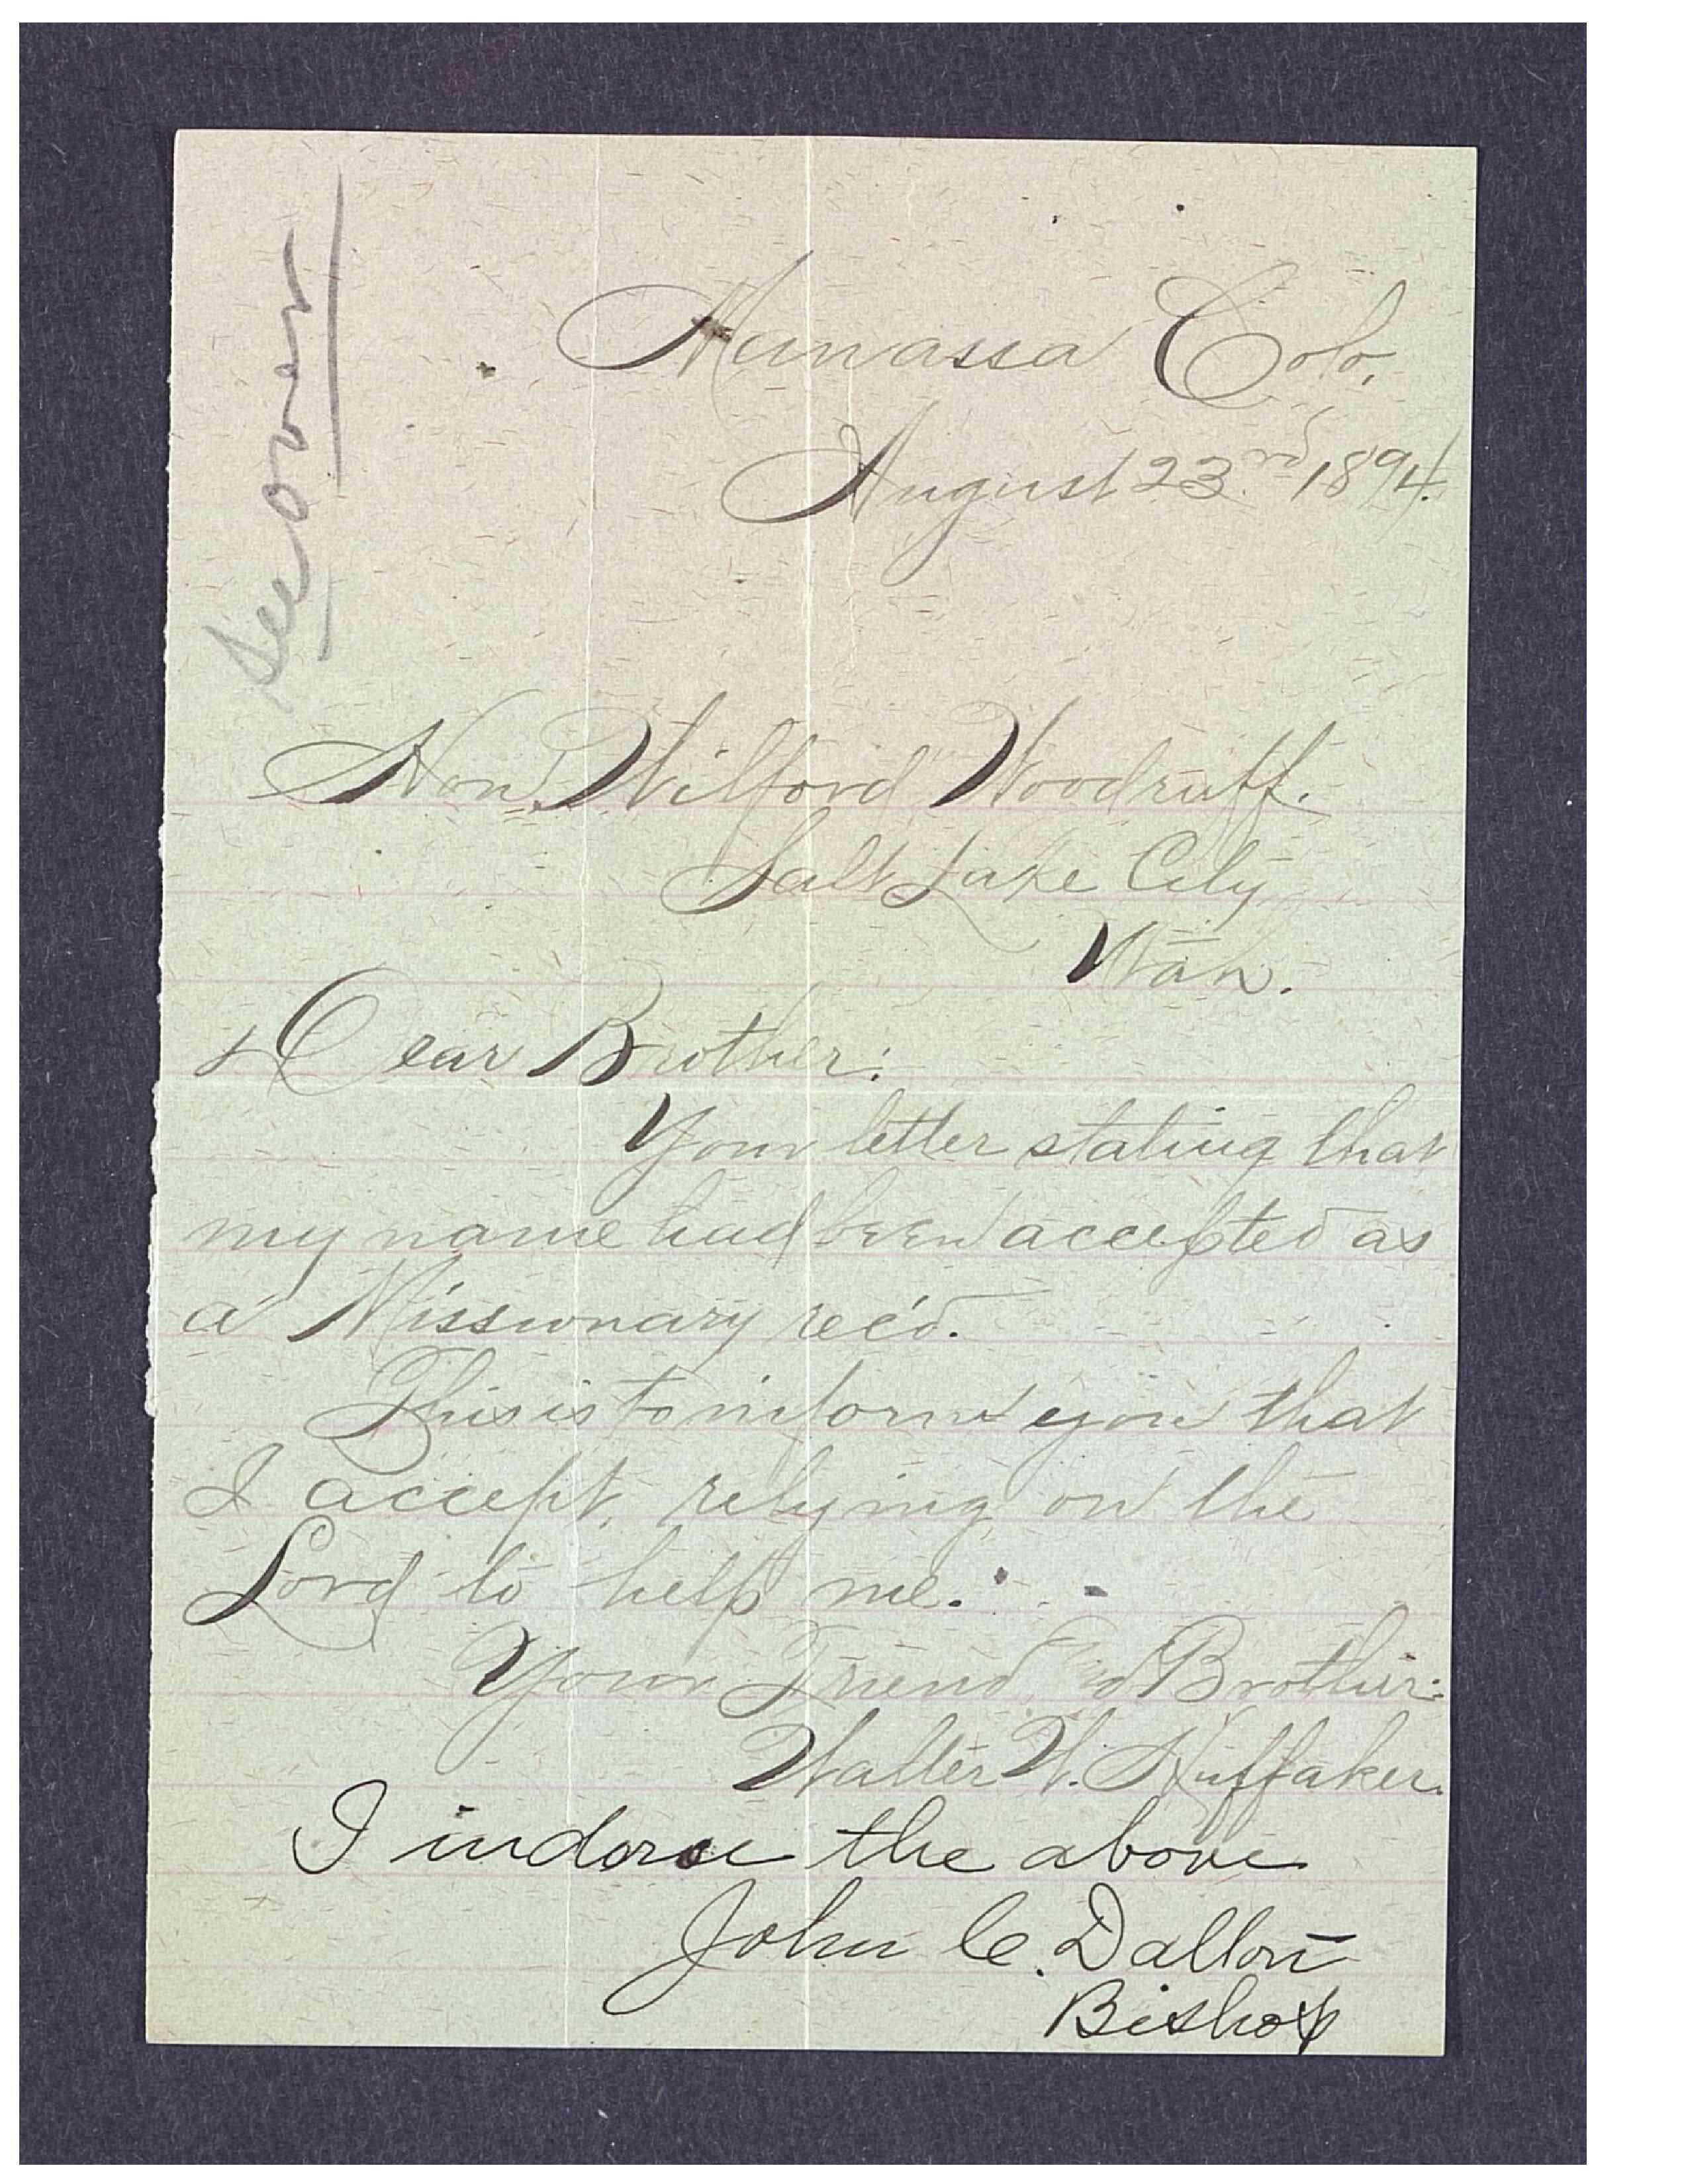 see over
Manassa Colo.
August 23rd 1894.
Hon. Wilford Woodruff.
Salt Lake City
Utah.
Dear Brother:
Your letter stating that
my name had been accepted as
a Missionary rec'd.
This is to inform you that
I accept, relying on the
Lord to help me.
Your Friend and Brother:
Walter W. Huffaker.
I indorse the above
John C. Dalton
Bishop